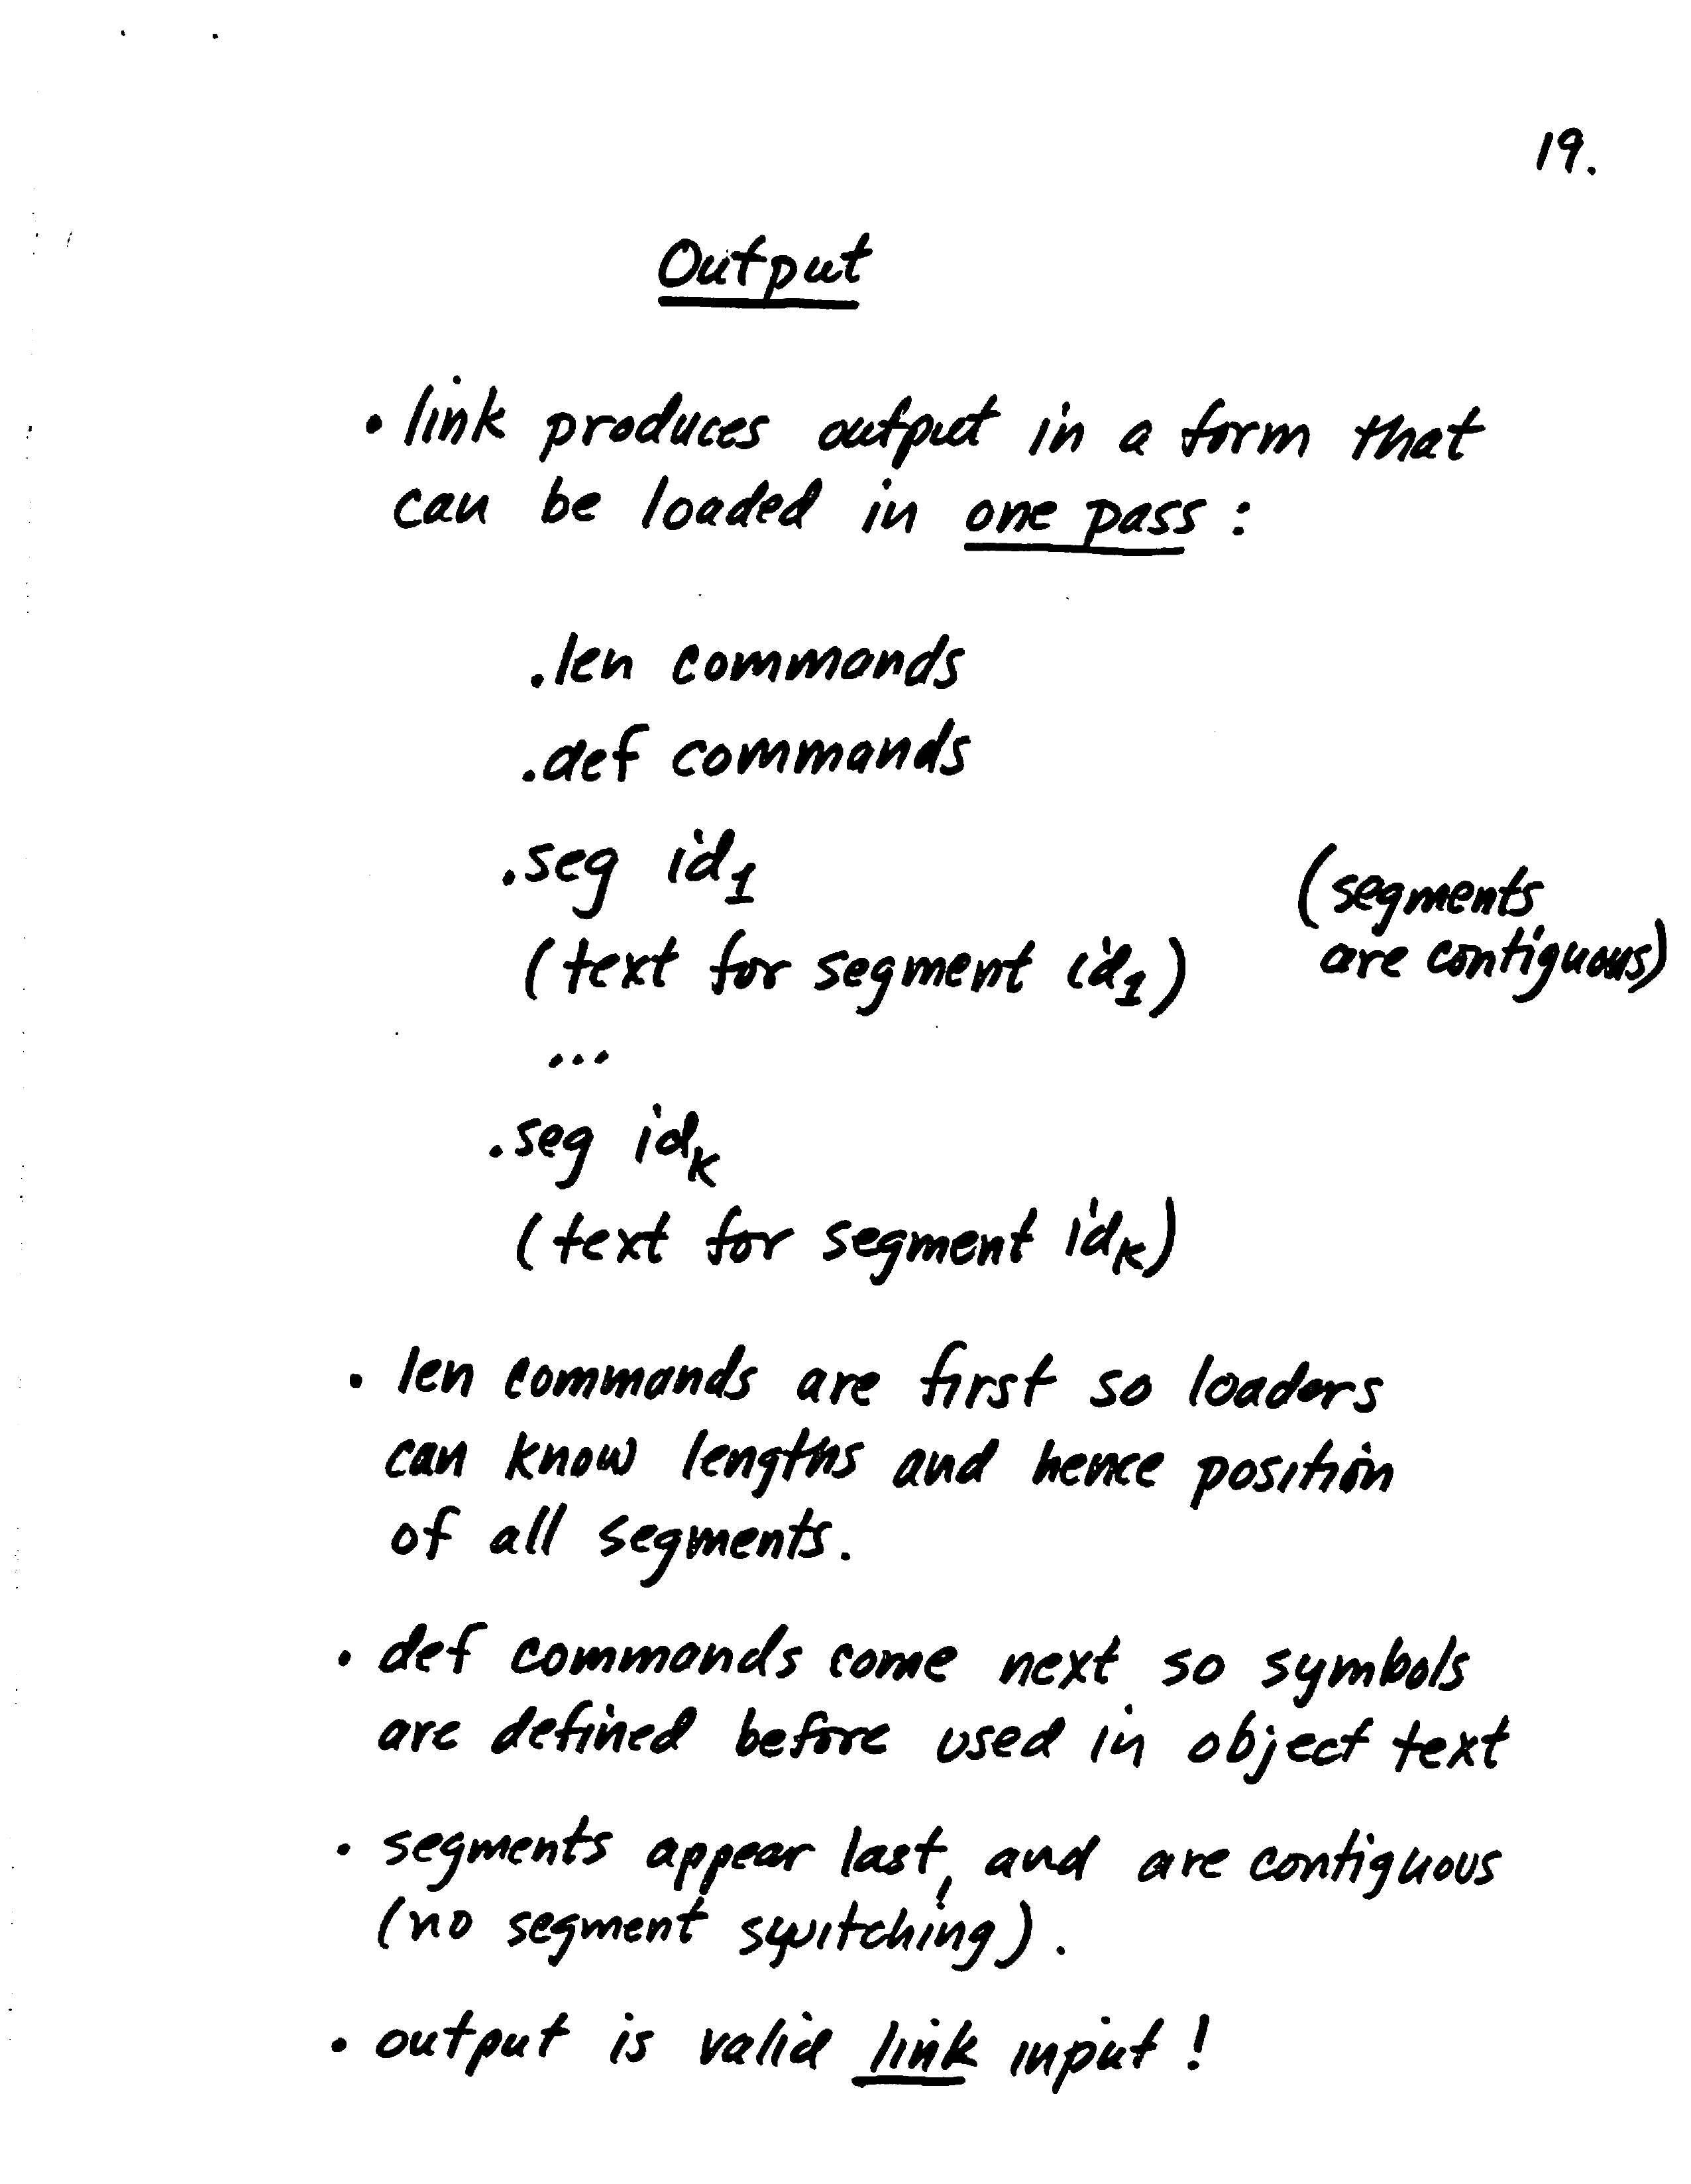 19.
Output
• link produces output in a form that
can be loaded in one pass :
.len commands
.def commands
.seg id₁
(text for segment id₁)
(segments
are contiguous)
...
.seg idₖ
(text for segment idₖ)
• len commands are first so loaders
can know lengths and hence position
of all segments.
• def commands come next so symbols
are defined before used in object text
• segments appear last, and are contiguous
(no segment switching).
• output is valid link input !